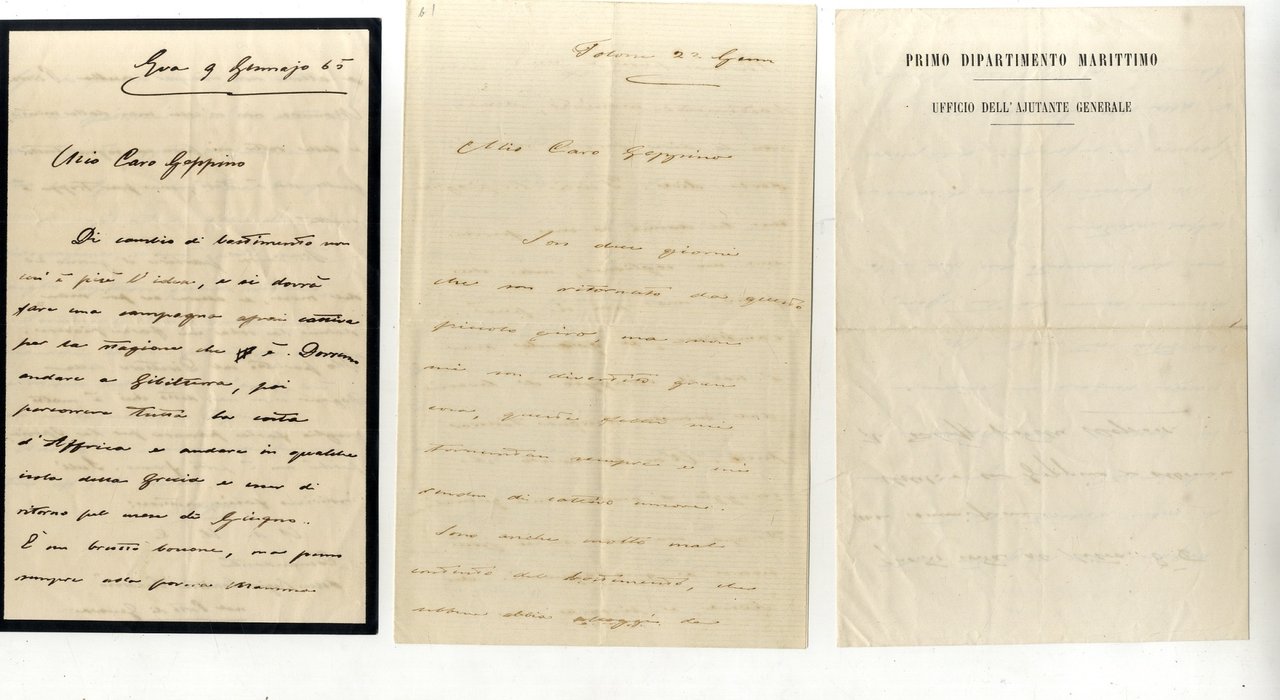 9 Gennajo 65
Mio Caro Geppino
Di cambio di bastimento non
più l'idea, e si dovrà
fare una campagna assai cattiva
per la stagione che è. Dovremo
andare a Gibilterra, poi
percorrere tutta la costa
d'Affrica e andare in qualche
isola della Grecia e esser di
ritorno pel mese di Giugno.
È un brutto boccone, ma penso
sempre alla povera Mamma
61
22 Genn
Mio Caro Geppino
Son due giorni
che son ritornato da questo
piccolo giro, ma non
mi son divertito gran
cosa, queste febbri mi
tormentan sempre e mi
rendon di cattivo umore.
Sono anche molto mal
contento del bastimento, che
sebbene abbia
PRIMO DIPARTIMENTO MARITTIMO
UFFICIO DELL'AJUTANTE GENERALE